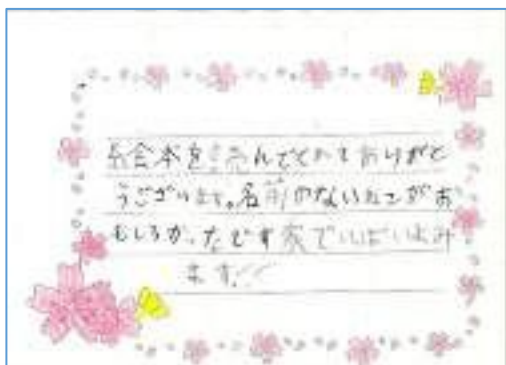 絵本を読んでくれてありがと
うございます。名前のないねこがお
もしろかったです家でいぱいよみ
ます!!